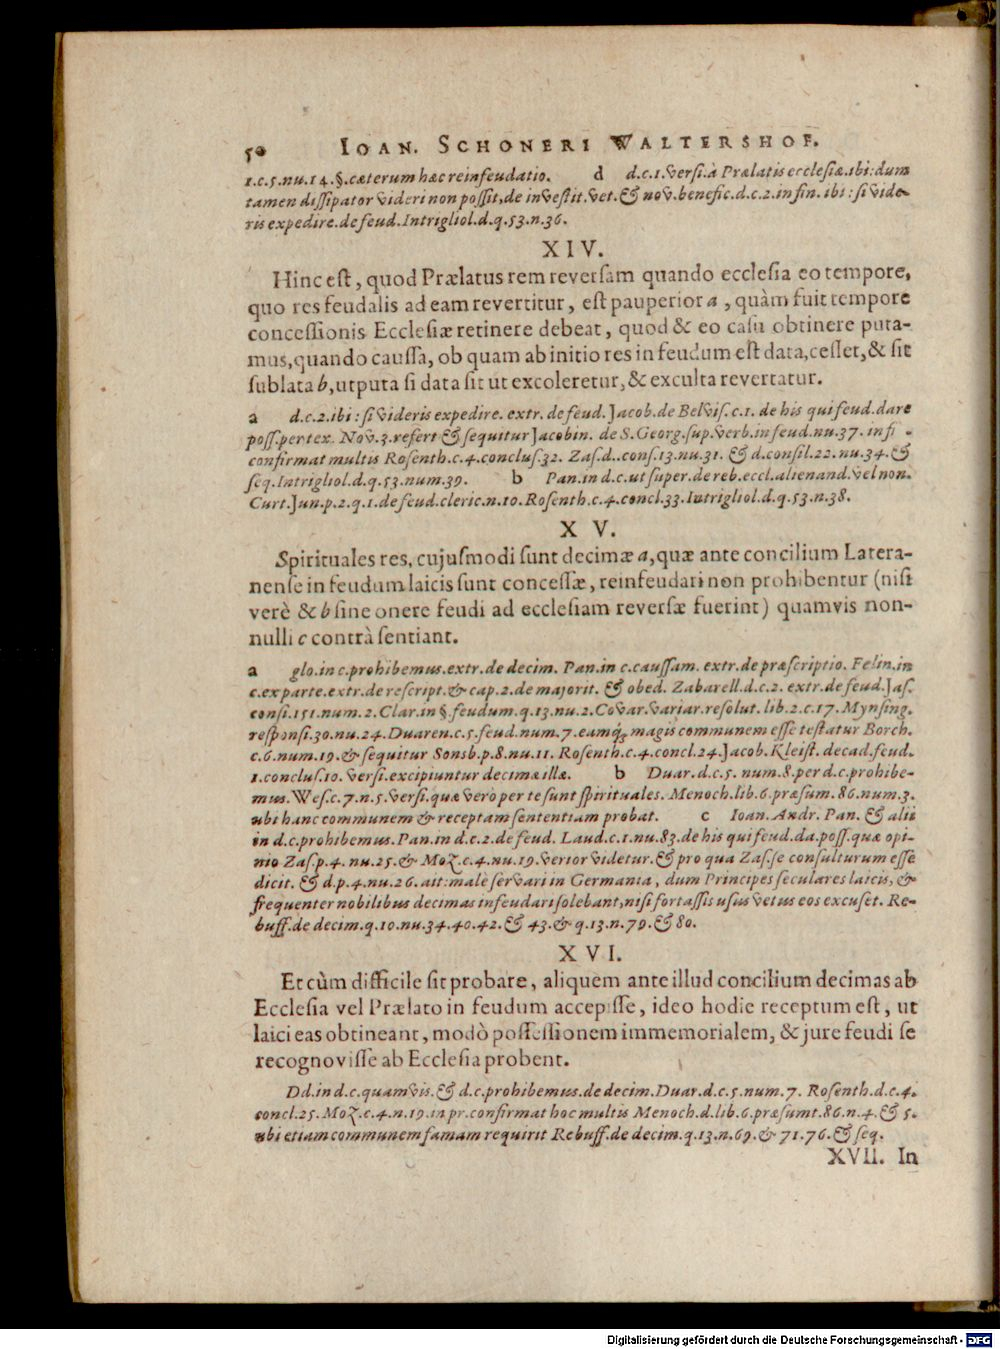 50 IOAN. SCHONERI WALTERSHOF.
1.c.5.nu.14.§.cæterum hæc reinfeudatio. d d.c.1.versi.à Prælatis ecclesiæ.ibi:dum
tamen dissipator videri non possit,de investit.vet.& nov.benefic.d.c.2.in fin. ibi : si vide-
ris expedire.de feud.Intrigliol.d.q.53.n.36.
XIV.
Hinc est, quod Prælatus rem reversam quando ecclesia eo tempore,
quo res feudalis ad eam revertitur, est pauperior a, quàm fuit tempore
concessionis Ecclesiæ retinere debeat, quod & eo casu obtinere puta-
mus,quando caussa, ob quam ab initio res in feudum est data,cesset,& sit
sublata b,utputa si data sit ut excoleretur,& exculta revertatur.
a d.c.2.ibi : si videris expedire. extr. de feud. Jacob.de Belvis.c.1. de his qui feud.dare
poss.per tex. Nov.3.refert & sequitur Jacobin. de S.Georg.sup.verb.in feud.nu.37. in fi -
confirmat multis Rosenth.c.4.conclus.32. Zas.d..cons.13.nu.31. & d.consil.22.nu.34.&
seq.Intrigliol.d.q.53.num.39. b Pan.in d.c.ut super.de reb.eccl.alienand.vel non.
Curt.Jun.p.2.q.1.de feud.cleric.n.10.Rosenth.c.4.concl.33.Intrigliol.d.q.53.n.38.
XV.
Spirituales res, cujusmodi sunt decimæ a,quæ ante concilium Latera-
nense in feudum laicis sunt concessæ, reinfeudari non prohibentur (nisi
verè & b sine onere feudi ad ecclesiam reversæ fuerint) quamvis non-
nulli c contrà sentiant.
a glo.in c.prohibemus.extr.de decim. Pan.in c.caussam. extr.de præscriptio. Felin.in
c.ex parte.extr.de rescript.& cap.2.de majorit. & obed. Zabarell.d.c.2. extr.de feud.Jas.
consi.151.num.2.Clar.in §.feudum.q.13.nu.2.Covar.variar.resolut. lib.2.c.17.Mynsing.
responsi.30.nu.24.Duaren.c.5.feud.num.7.eamq́; magis communem esse testatur Borch.
c.6.num.19.& sequitur Sonsb.p.8.nu.11. Rosenth.c.4.concl.24.Jacob.Kleist. decad.feud.
1.conclus.10.versi.excipiuntur decimæ illæ. b Duar.d.c.5. num.8.per d.c.prohibe-
mus.Wes.c.7.n.5.versi.quæ verò per te sunt spirituales. Menoch.lib.6.præsum. 86.num.3.
ubi hanc communem & receptam sententiam probat. c Ioan.Andr. Pan. & alii
in d.c.prohibemus.Pan.in d.c.2.de feud. Laud.c.1.nu.83.de his qui feud.da.poss.quæ opi-
nio Zas.p.4. nu.25.& Moz.c.4.nu.19.verior videtur.& pro qua Zas.se consulturum esse
dicit. & d.p.4.nu.26.ait:male servari in Germania, dum Principes seculares laicis, &
frequenter nobilibus decimas infeudari solebant,nisi fortassis usus vetus eos excuset. Re-
buff.de decim.q.10.nu.34.40.42.& 43.& q.13.n.79.& 80.
XVI.
Et cùm difficile sit probare, aliquem ante illud concilium decimas ab
Ecclesia vel Prælato in feudum accepisse, ideo hodie receptum est, ut
laici eas obtineant, modò possessionem immemorialem, & jure feudi se
recognovisse ab Ecclesia probent.
Dd.in d.c.quamvis.& d.c.prohibemus.de decim.Duar.d.c.5.num.7. Rosenth.d.c.4.
concl.25.Moz.c.4.n.19.in pr.confirmat hoc multis Menoch.d.lib.6.præsumt.86.n.4.& 5.
ubi etiam communem famam requirit Rebuff.de decim.q.13.n.69.& 71.76.& seq.
XVII. In
Digitalisierung gefördert durch die Deutsche Forschungsgemeinschaft - DFG